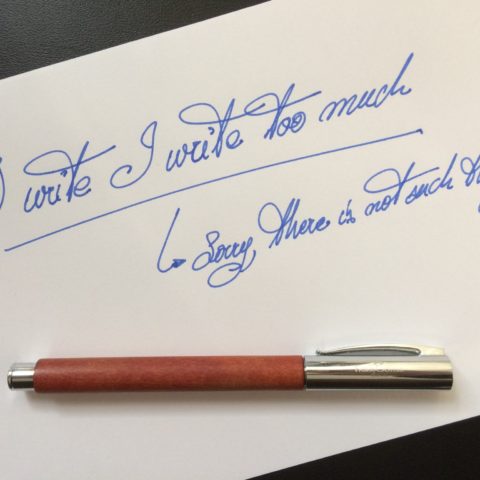 I write I write too much
Sorry there is not such